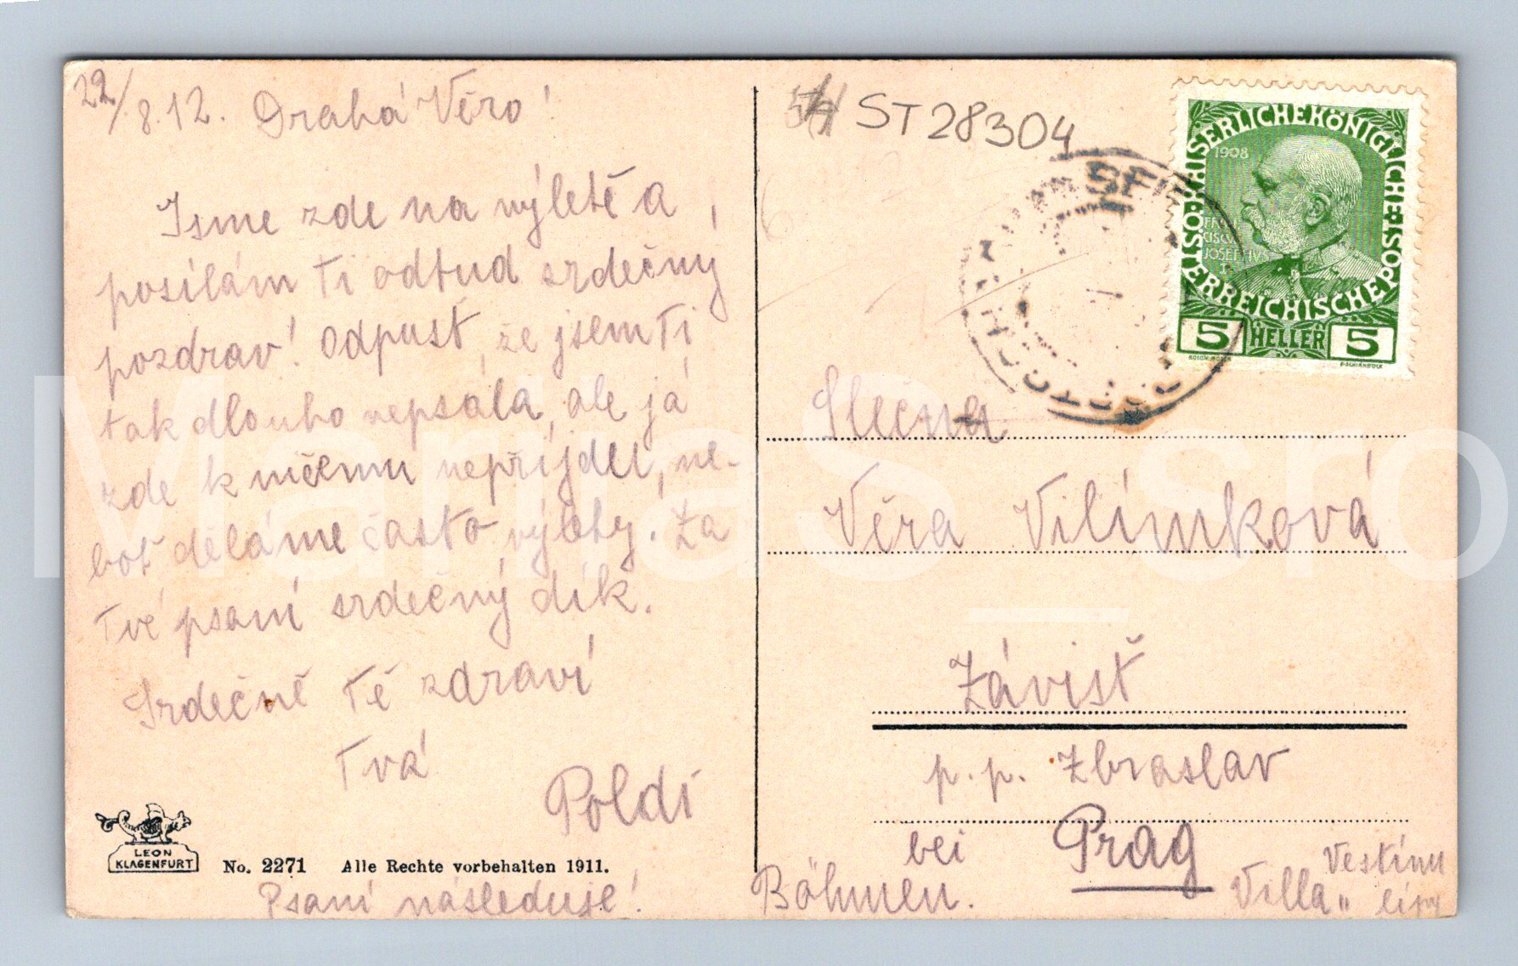 22/8.12. Drahá Věro!
Jsme zde na výletě a
posílám Ti odtud srdečný
pozdrav! Odpusť, že jsem Ti
tak dlouho nepsala, ale já
zde k ničemu nepřijdu, ne-
boť děláme často výlety. Za
Tvé psaní srdečný dík.
Srdečně Tě zdraví
Tvá
Poldi
LEON
KLAGENFURT
No. 2271 Alle Rechte vorbehalten 1911.
Psaní následuje!
ST28304
KAISERLICHEKÖNIGLICHE
ÖSTERREICHISCHEPOST
1908
5 HELLER 5
Slečna
Věra Vilímková
Závisť
p. p. Zbraslav
bei Prag
Böhmen.
Villa„
MartaS_sro